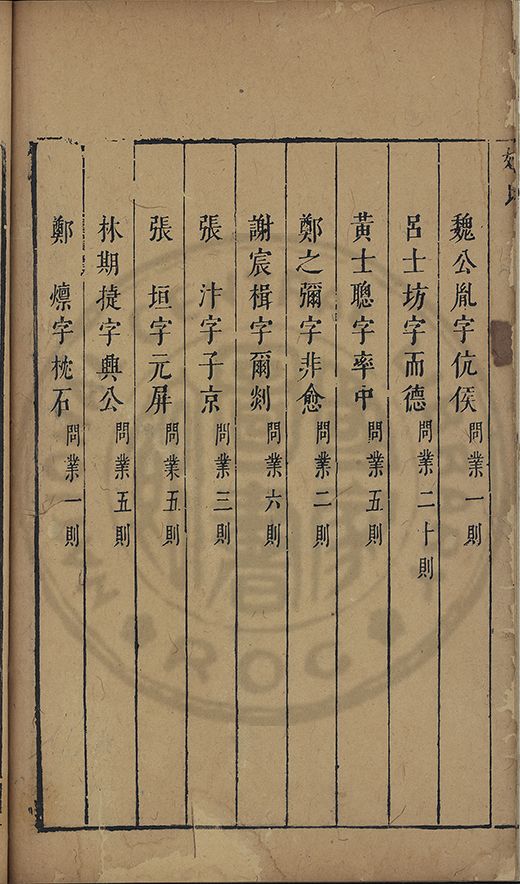 魏公胤字伉侯問業一則
呂士坊字而德問業二十則
黃士聰字率中問業五則
鄭之彌字非愈問業二則
謝宸楫字爾剡問業六則
張汴字子京問業三則
張垣字元屏問業五則
林期㨗字興公問業五則
鄭燷字枕石問業一則
ROC